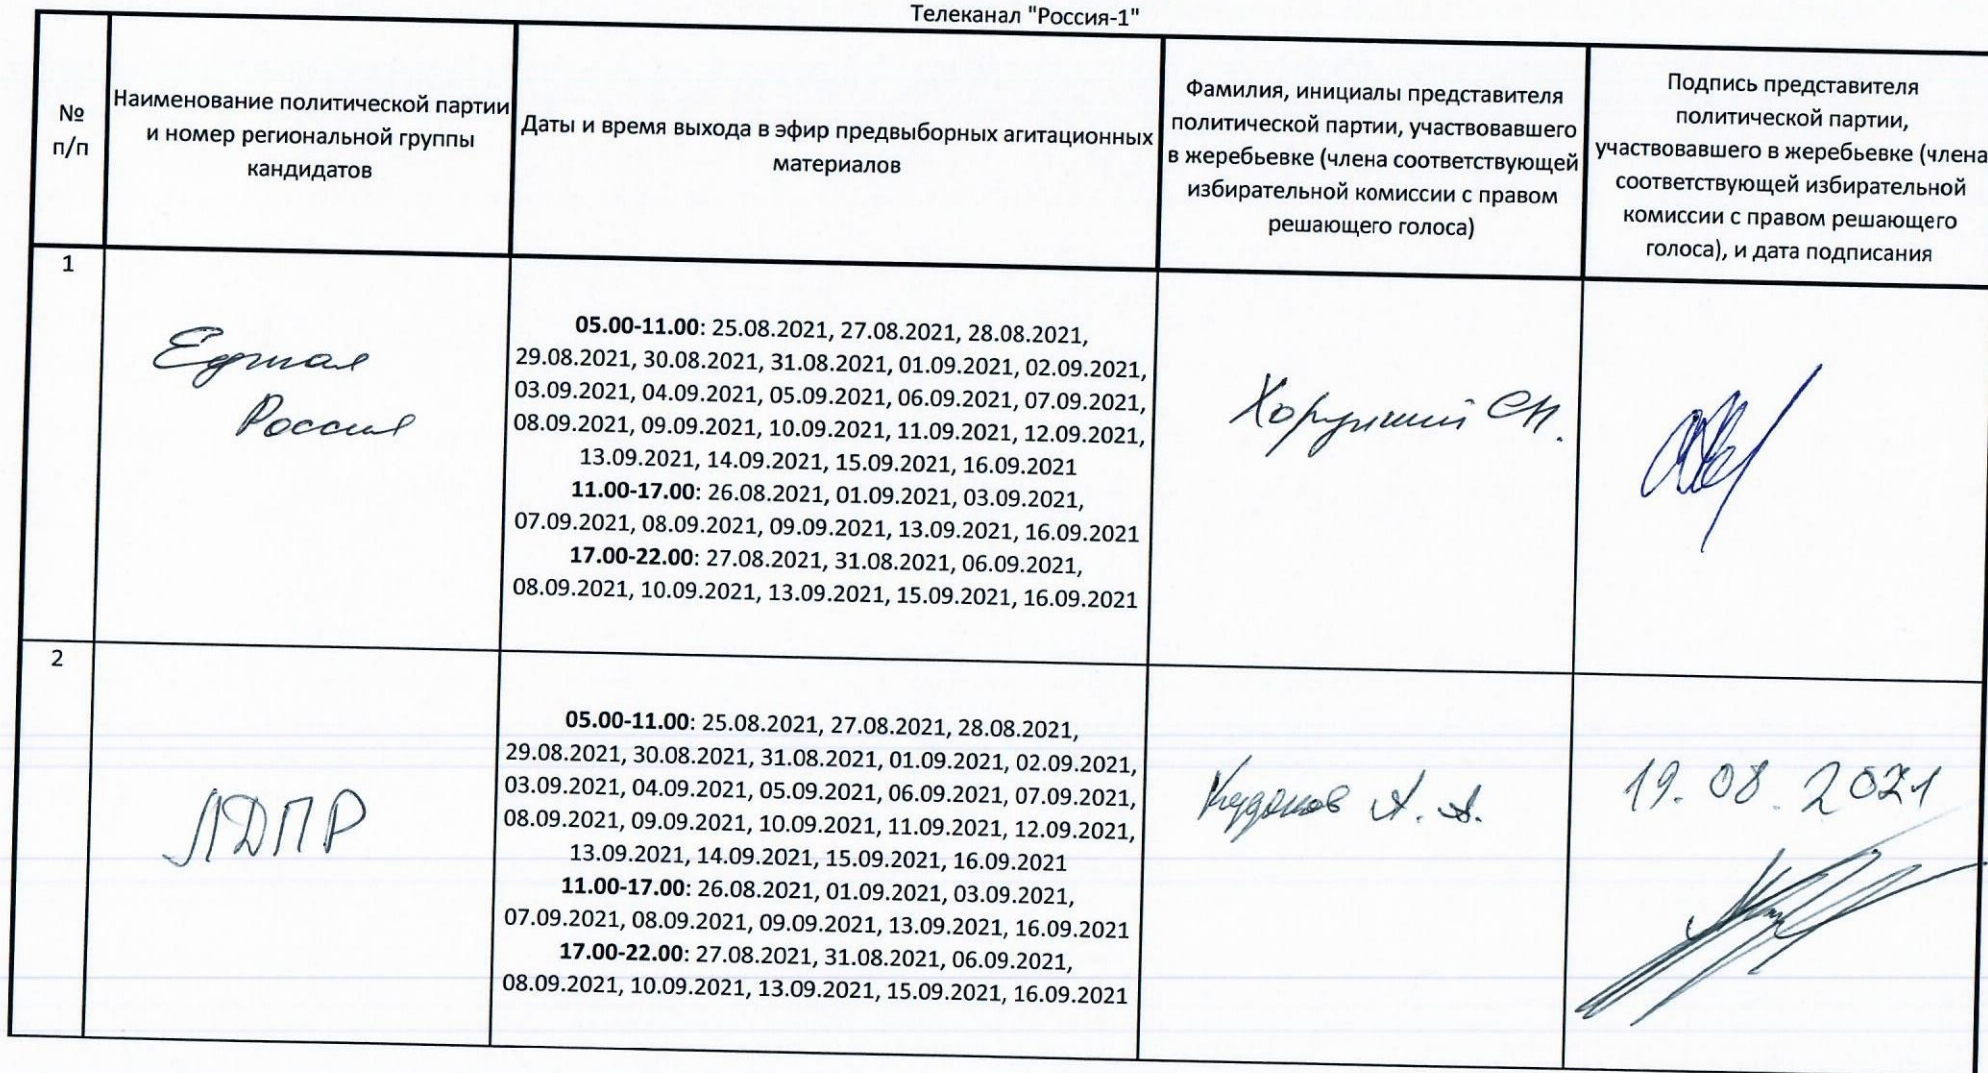 Телеканал "Россия-1"
№
п/п
Наименование политической партии
и номер региональной группы
кандидатов
Даты и время выхода в эфир предвыборных агитационных
материалов
Фамилия, инициалы представителя
политической партии, участвовавшего
в жеребьевке (члена соответствующей
избирательной комиссии с правом
решающего голоса)
Подпись представителя
политической партии,
участвовавшего в жеребьевке (члена
соответствующей избирательной
комиссии с правом решающего
голоса), и дата подписания
1
Единая
Россия
05.00-11.00: 25.08.2021, 27.08.2021, 28.08.2021,
29.08.2021, 30.08.2021, 31.08.2021, 01.09.2021, 02.09.2021,
03.09.2021, 04.09.2021, 05.09.2021, 06.09.2021, 07.09.2021,
08.09.2021, 09.09.2021, 10.09.2021, 11.09.2021, 12.09.2021,
13.09.2021, 14.09.2021, 15.09.2021, 16.09.2021
11.00-17.00: 26.08.2021, 01.09.2021, 03.09.2021,
07.09.2021, 08.09.2021, 09.09.2021, 13.09.2021, 16.09.2021
17.00-22.00: 27.08.2021, 31.08.2021, 06.09.2021,
08.09.2021, 10.09.2021, 13.09.2021, 15.09.2021, 16.09.2021
2
ЛДПР
05.00-11.00: 25.08.2021, 27.08.2021, 28.08.2021,
29.08.2021, 30.08.2021, 31.08.2021, 01.09.2021, 02.09.2021,
03.09.2021, 04.09.2021, 05.09.2021, 06.09.2021, 07.09.2021,
08.09.2021, 09.09.2021, 10.09.2021, 11.09.2021, 12.09.2021,
13.09.2021, 14.09.2021, 15.09.2021, 16.09.2021
11.00-17.00: 26.08.2021, 01.09.2021, 03.09.2021,
07.09.2021, 08.09.2021, 09.09.2021, 13.09.2021, 16.09.2021
17.00-22.00: 27.08.2021, 31.08.2021, 06.09.2021,
08.09.2021, 10.09.2021, 13.09.2021, 15.09.2021, 16.09.2021
А. А.
19.08.2021